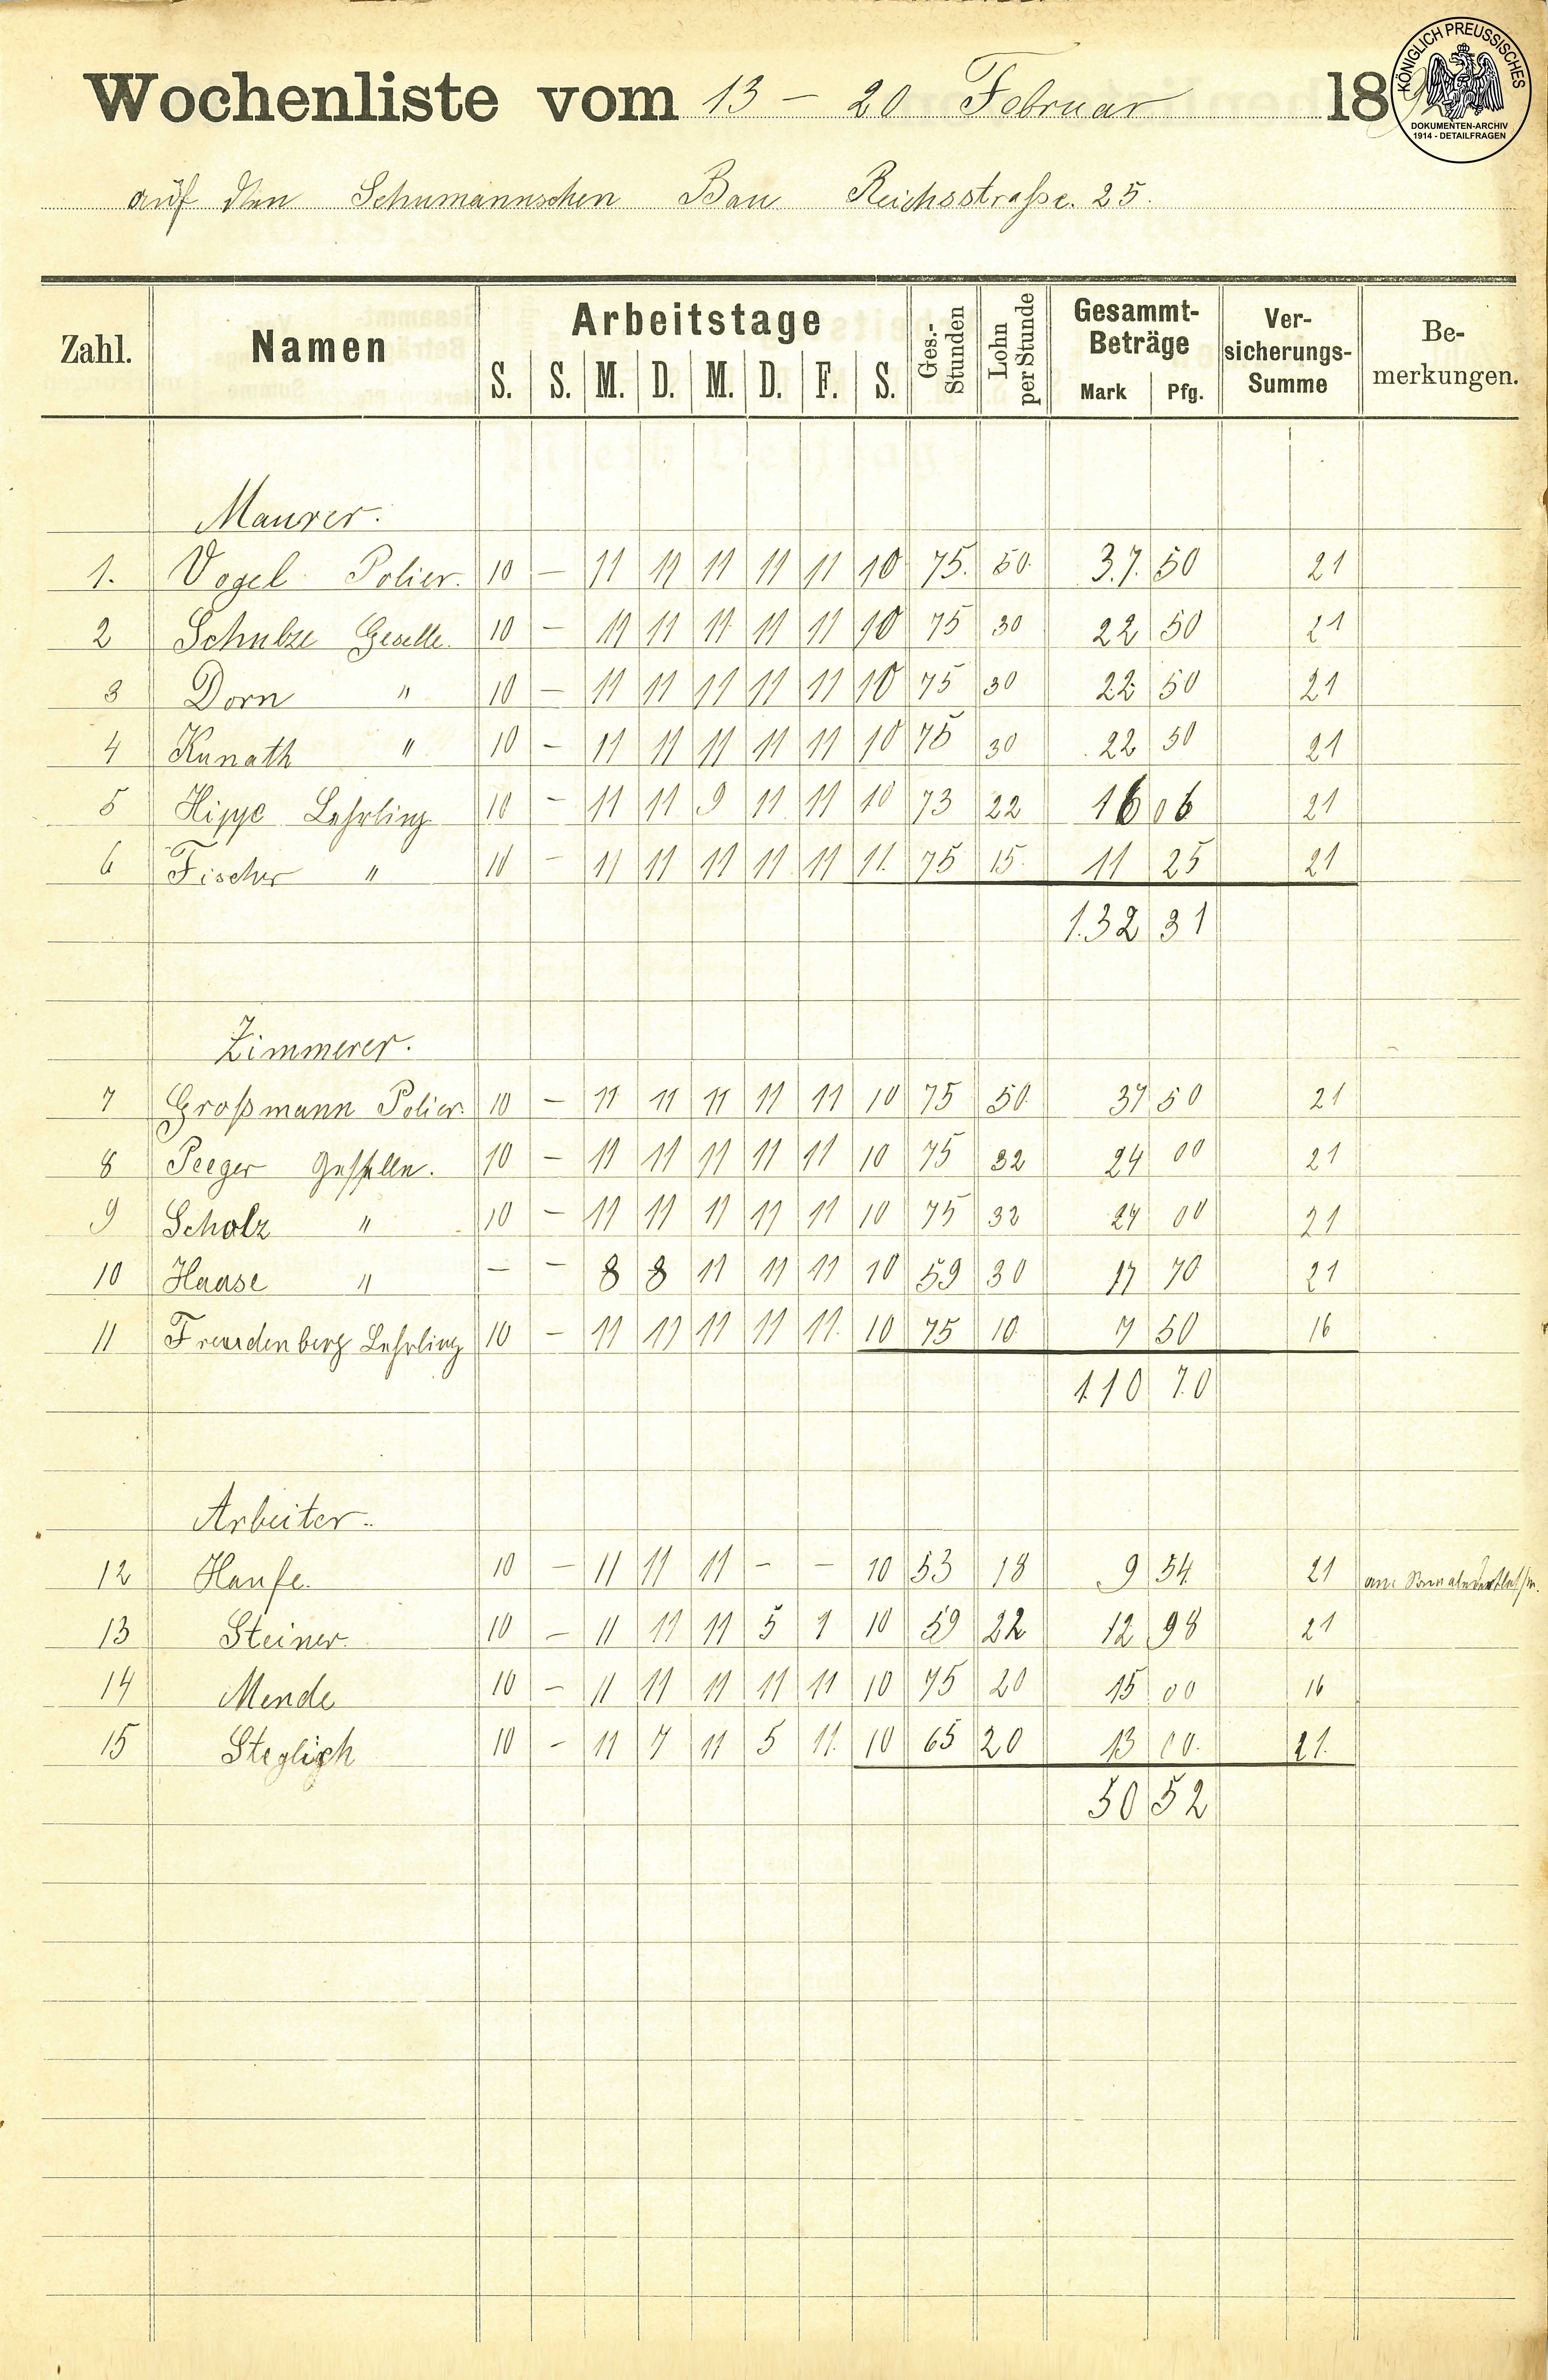 KÖNIGLICH PREUSSISCHES
DOKUMENTEN-ARCHIV
1914 - DETAILFRAGEN
Wochenliste vom 13 – 20 Februar 189
auf den Schumannschen Bau Reichsstraße. 25.
Zahl. Namen Arbeitstage Ges.-Stunden Lohn per Stunde Gesammt-Beträge Ver-sicherungs-Summe Be-merkungen.
S. S. M. D. M. D. F. S. Mark Pfg.
Maurer.
1. Vogel Polier. 10 – 11 11 11 11 11 10 75. 50. 37. 50 21
2 Schulze Geselle. 10 – 11 11 11 11 11 10 75 30 22 50 21
3 Dorn " 10 – 11 11 11 11 11 10 75 30 22 50 21
4 Kunath " 10 – 11 11 11 11 11 10 75 30 22 50 21
5 Hippe Lehrling 10 – 11 11 9 11 11 10 73 22 16 06 21
6 Fischer " 10 – 11 11 11 11 11 11. 75 15. 11 25 21
132 31
Zimmerer.
7 Großmann Polier. 10 – 11 11 11 11 11 10 75 50. 37 50 21
8 Peeger Geselle. 10 – 11 11 11 11 11 10 75 32 24 00 21
9 Scholz " 10 – 11 11 11 11 11 10 75 32 24 00 21
10 Haase " – – 8 8 11 11 11 10 59 30 17 70 21
11 Freudenberg Lehrling 10 – 11 11 11 11 11. 10 75 10 7 50 16
110 70
Arbeiter.
12 Hanfe. 10 – 11 11 11 – – 10 53 18 9 54 21 am
13 Steiner. 10 – 11 11 11 5 1 10 59 22 12 98 21
14 Mende 10 – 11 11 11 11 11 10 75 20 15 00 16
15 Steglich 10 – 11 7 11 5 11. 10 65 20 13 00. 21.
50 52